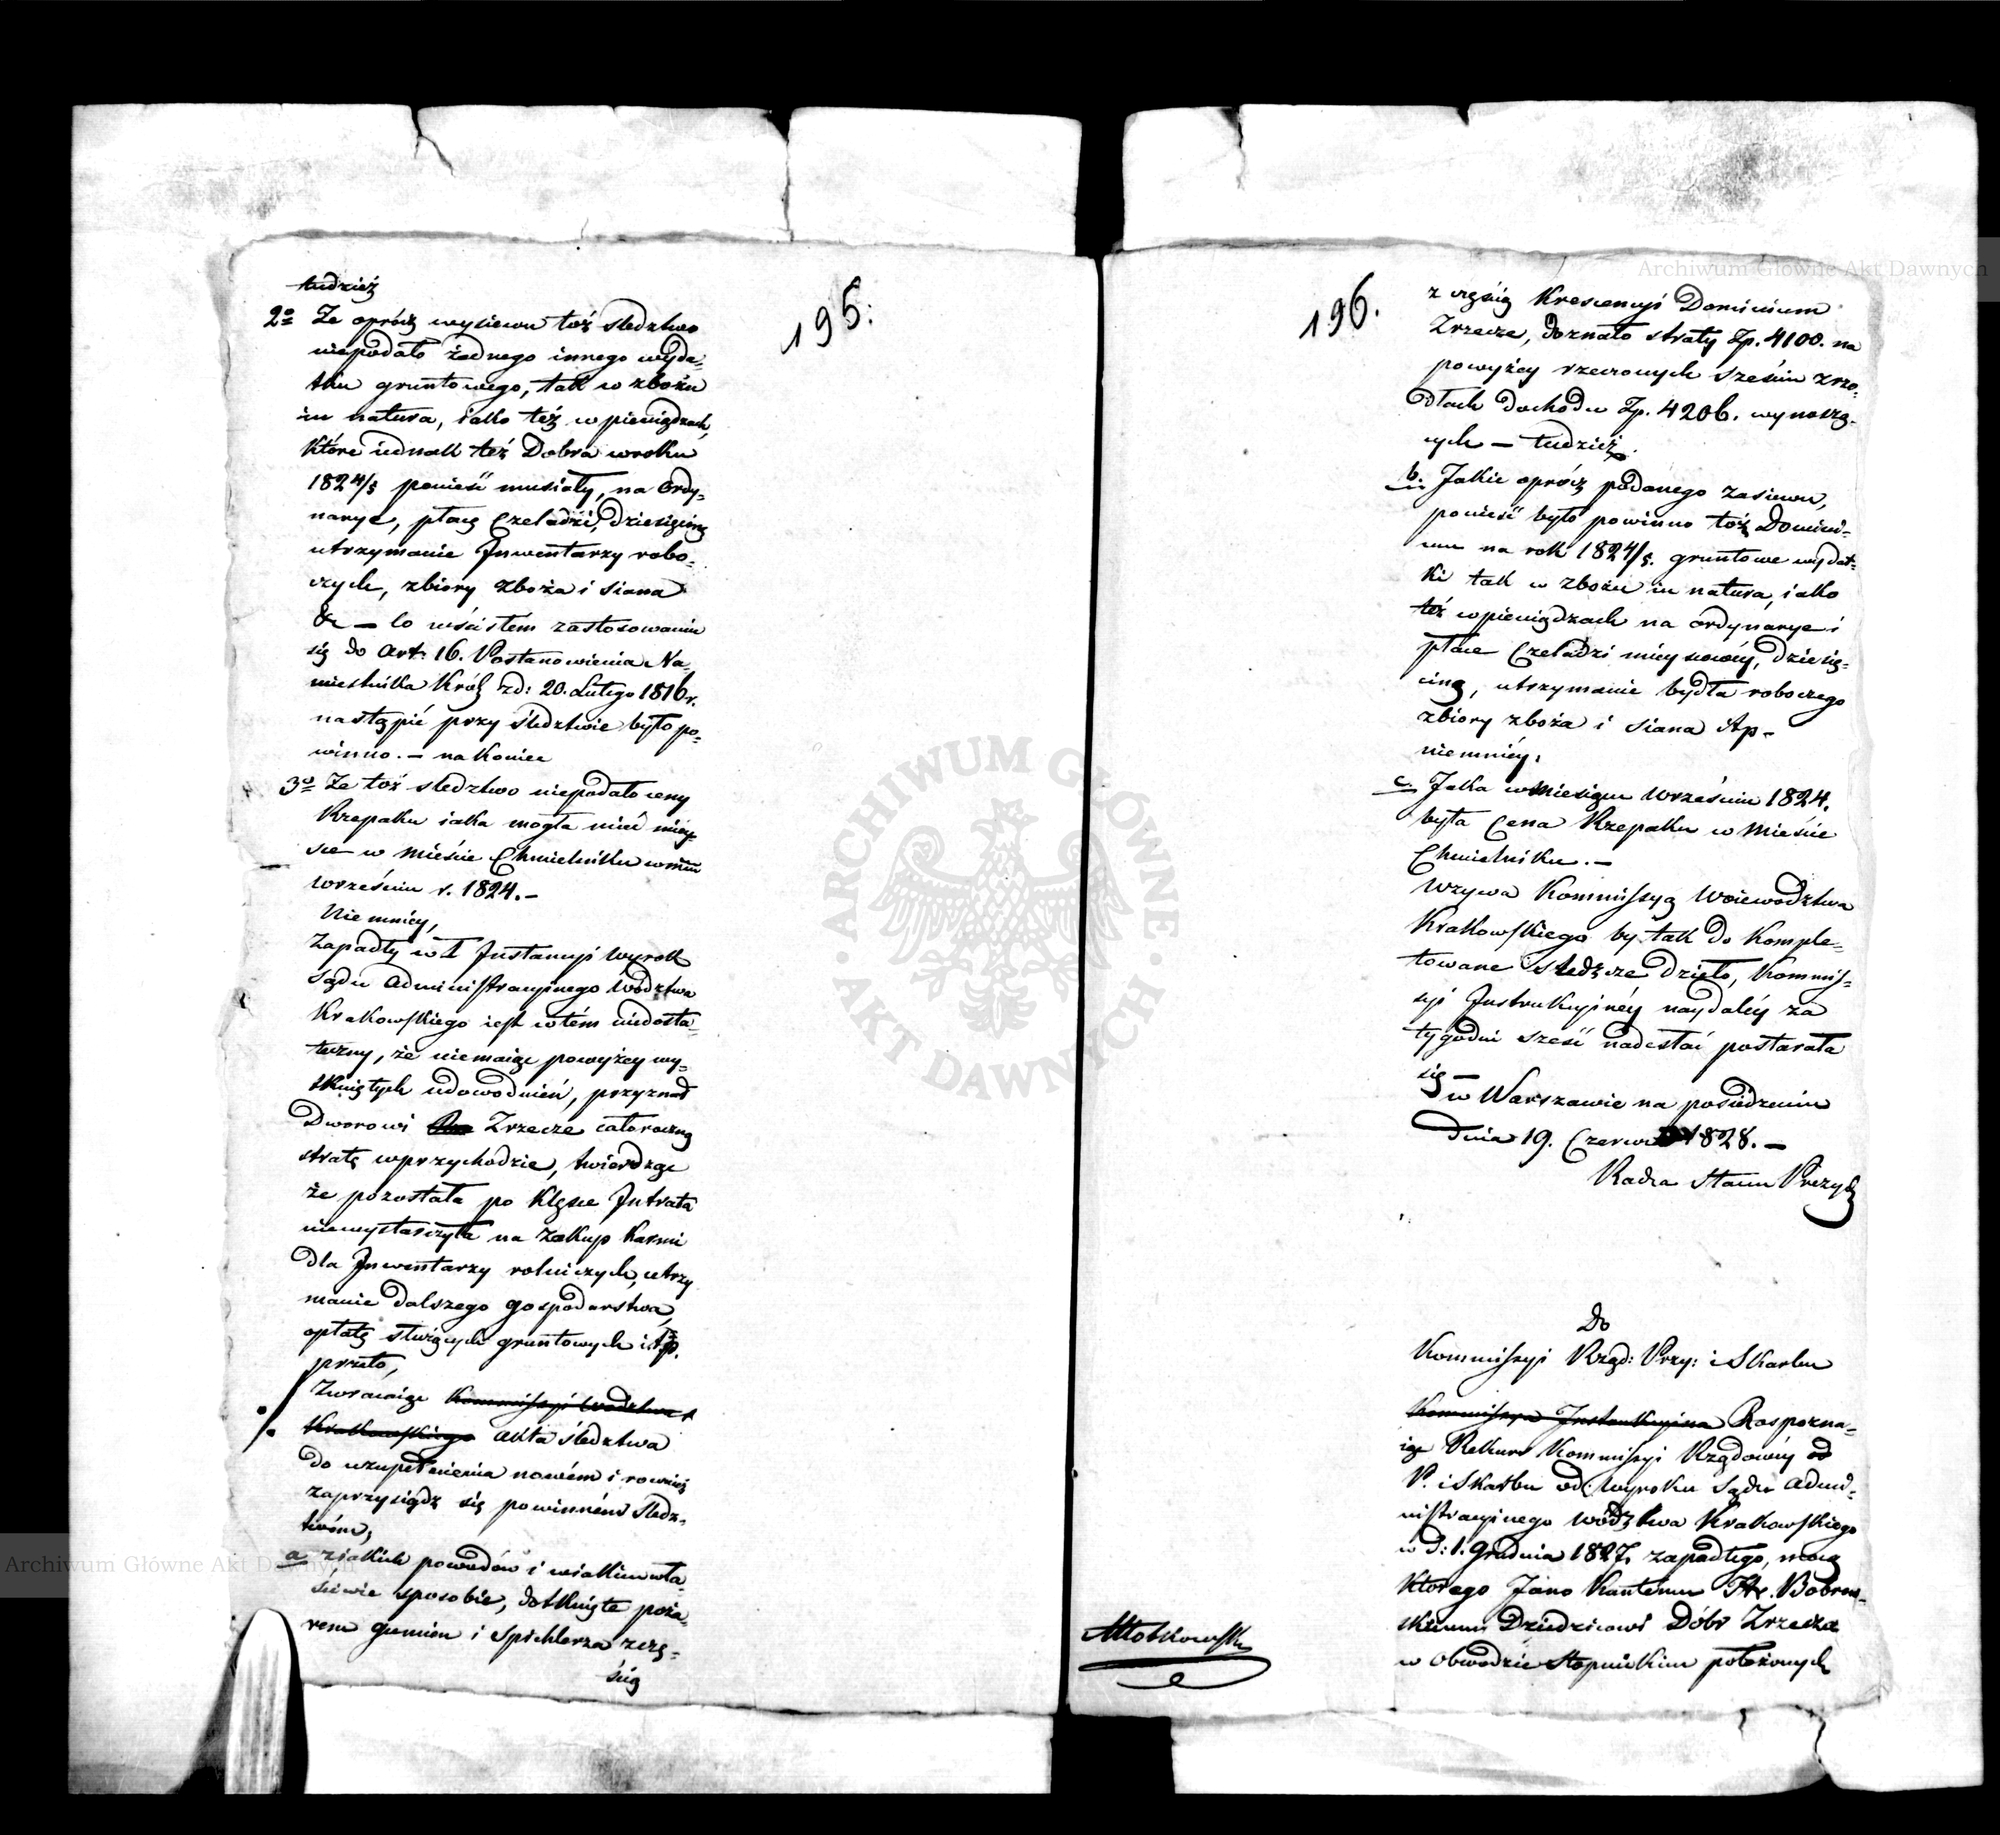 195.
tudzież
2o Ze oprócz wysiewu toż sledztwo
niepodało żadnego innego wyda=
tku gruntowego, tak w zbożu
in natura, iako też w pieniądzach,
które iednak też Dobra w roku
1824/5 ponieść musiały, na Ordy=
narye, płacę Czeladzi, dziesięcinę
utrzymanie Inwentarzy robo=
czych, zbiory zboża i siana
&c — Co w ścisłém zastosowaniu
się do Art: 16. Postanowienia Na=
miestnika Król: z d: 20. Lutego 1816 r.
nastąpić przy śledztwie było po=
winno. — nakoniec
3o Ze toż sledztwo niepodało ceny
Rzepaku iaka mogła mieć miey=
sce w mieście Chmielniku w mcu
wrześniu r. 1824. —
Niemniey,
Zapadły w I Instancyi Wyrok
Sądu Administracyinego Wodztwa
Krakowskiego iest w tém niedosta=
teczny, że niemaiąc powyżey wy=
tkniętych udowodnień, przyznał
Dworowi Zrzecze całoroczną
stratę w przychodzie, twierdząc
że pozostała po klęsce Intrata
niewystarczyła na zakup karmi
dla Inwentarzy rolniczych, utrzy
manie dalszego gospodarstwa,
opłatę służących gruntowych i t.p.
przeto,
Zwracaiąc Kommissyi Wodztwa
Krakowskiego akta śledztwa
do uzupełnienia nowém i rownież
zaprzysiądz się powinném śledz=
twém,
a z iakich powodów i w iakim wła=
ściwie sposobie, dotknięte poża=
rem gumien i Spichlerza z czę=
ścią
196.
z częścią Krescencyi Dominium
Zrzecze, doznało straty Zp. 4100. na
powyżey rzeczonych sześciu zrzo=
dłach dochodu Zp. 4206. wynoszą=
cych — tudzież.
b. Jakie oprócz podanego zasiewu,
ponieść było powinno toż Domini=
um na rok 1824/5. gruntowe wydat=
ki tak w zbożu in natura, iako
też w pieniądzach na ordynarye i
płace Czeladzi mieyscowéy, dziesię=
cinę, utrzymanie bydła roboczego
zbiory zboża i siana itp —
niemniéy,
c. Jaka w miesiącu Wrześniu 1824.
była Cena Rzepaku w mieście
Chmielniku. —
Wzywa Kommissyą Woiewodztwa
Krakowskiego by tak do komple=
towane śledcze dzieło, Kommis=
syi Instrukcyinéy naydaléy za
tygodni sześć nadesłać postarała
się —
w Warszawie na posiedzeniu
dnia 19. Czerwca 1828. —
Radca Stanu Prezyd
Do
Kommissyi Rząd: Przy: i Skarbu
Kommissya Instrukcyina Rozpozna=
iąc Rekurs Kommissyi Rządowéy
P. i Skarbu od Wyroku Sądu Admi=
nistracyinego Wodztwa Krakowskiego
w d: 1. Grudnia 1827. zapadłego, mocą
którego Jano Kantemu Hr. Bobrow=
skiemu Dziedzicowi Dóbr Zrzecza
w Obwodzie Stopnickim położonych
Archiwum Główne Akt Dawnych
Archiwum Główne Akt Dawnych
ARCHIWUM GŁÓWNE
AKT DAWNYCH